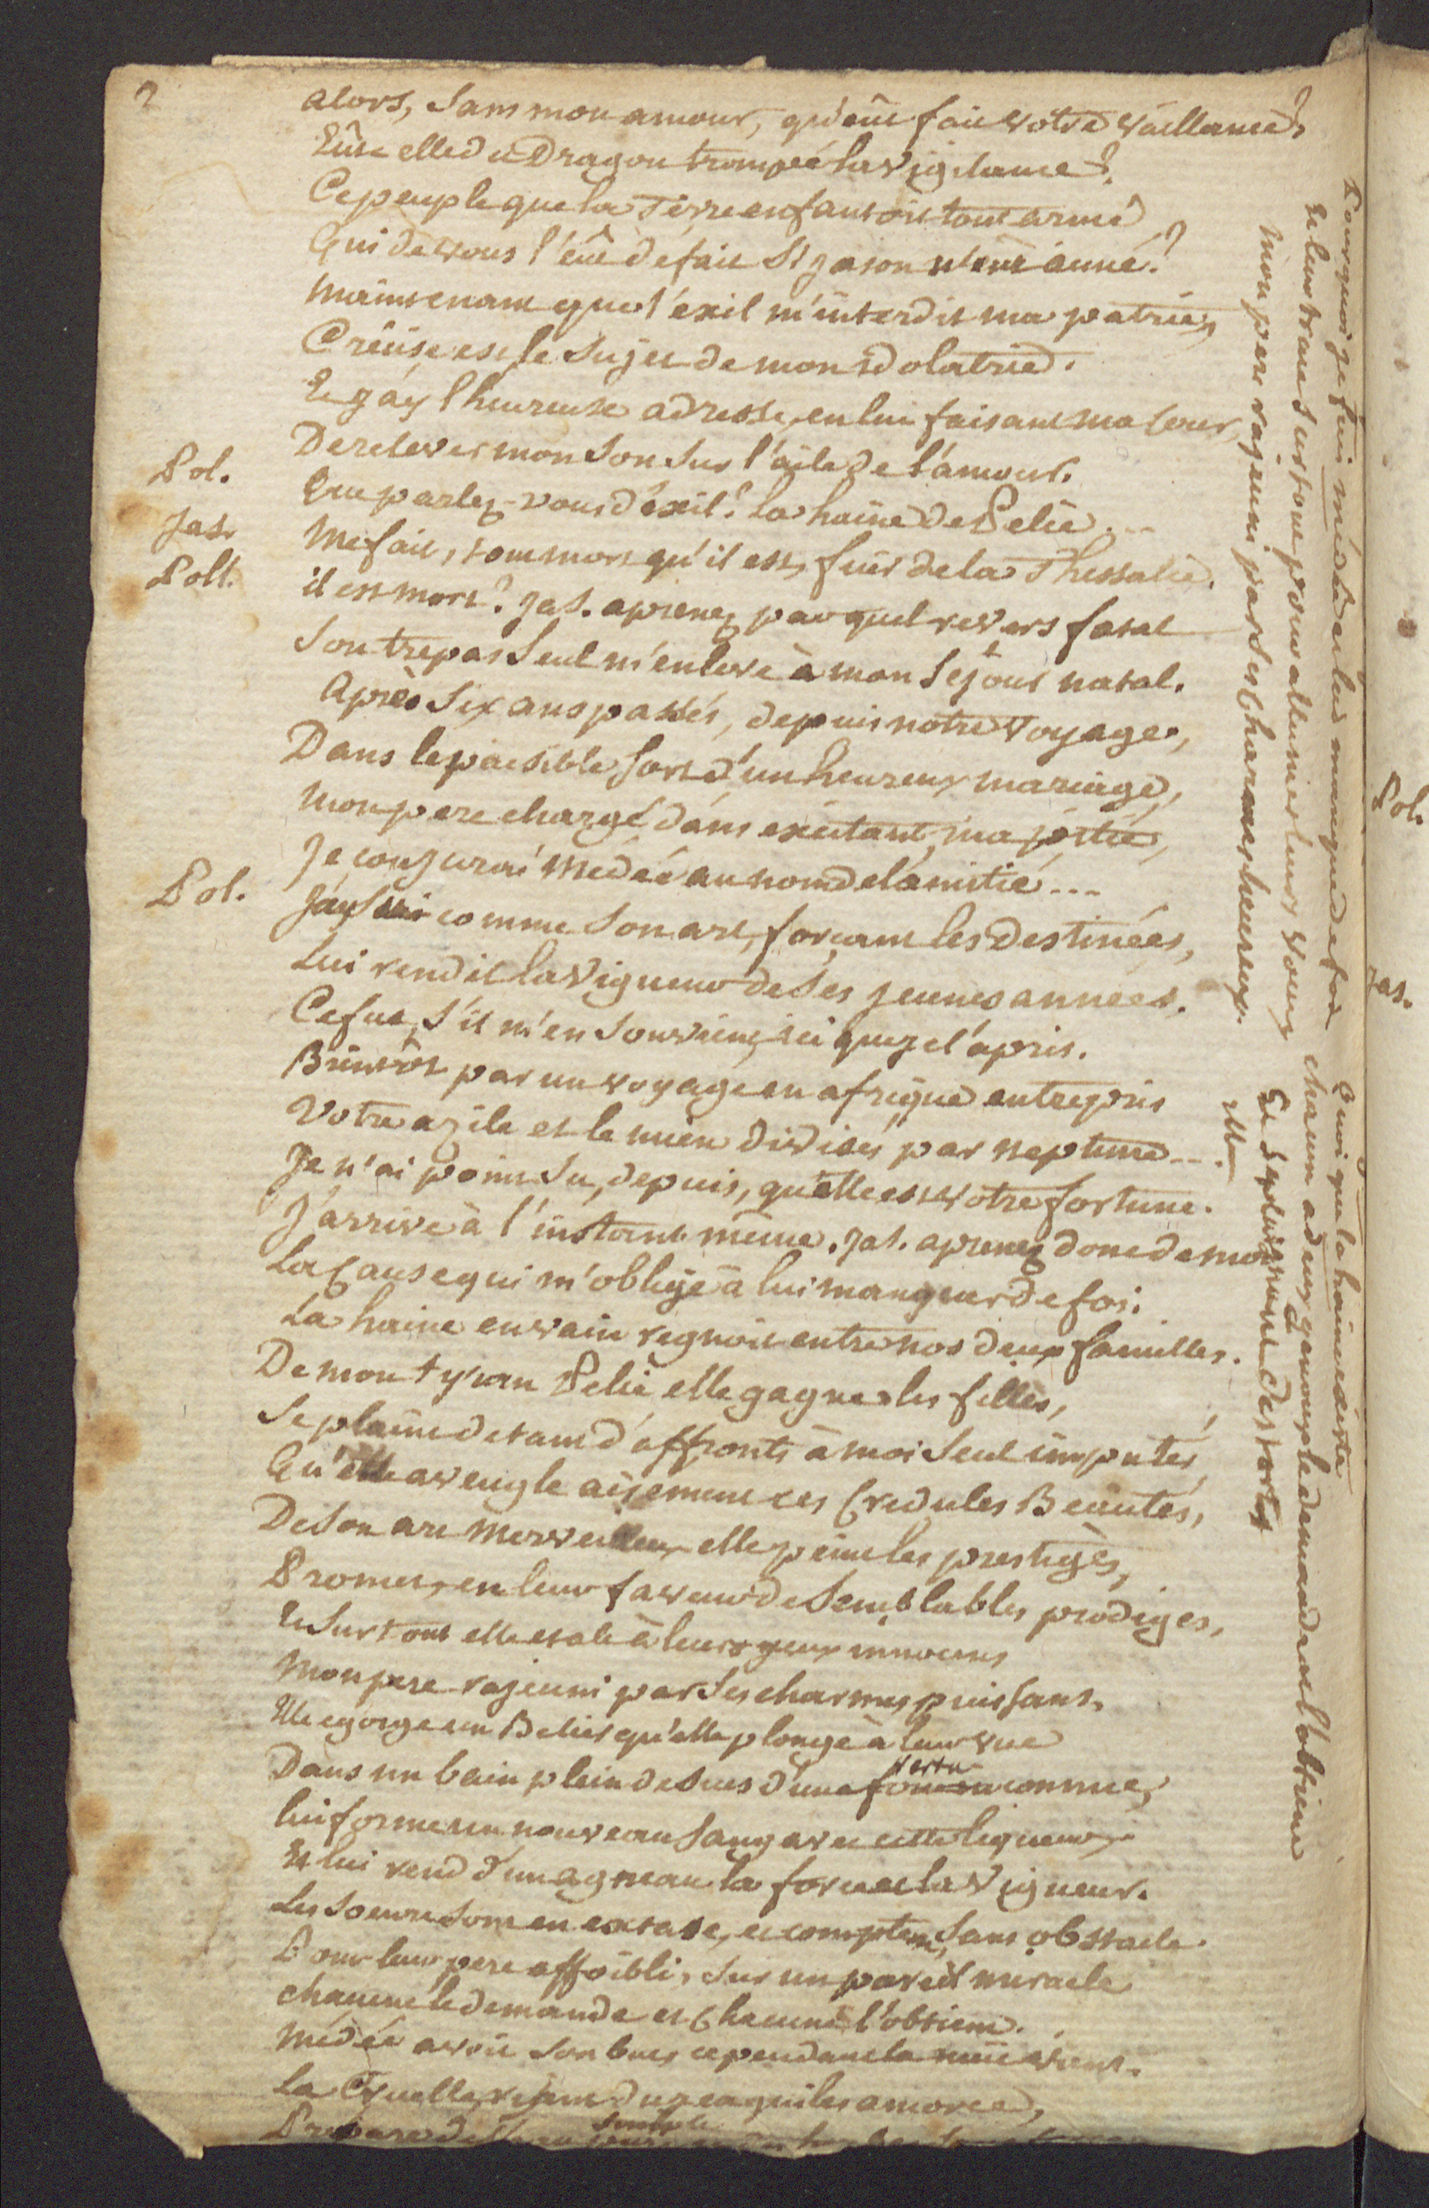 2
alors, sans mon amour, qu'eût fait votre vaillance?
Eût-elle du Dragon trompé la vigilance?
Ce peuple que la Terre enfantoit tout armé
Qui de vous l'eût défait si jason n'eût aimé?
Maintenant que l'exil m'interdit ma patrie,
Créüse est le sujet de mon idolatrie.
Et j'ay l'heureuse adresse, en lui faisant ma Cour,
De relever mon Son sur l'aile de l'amour.
Pol. Que parlez-vous d'éxil? la haine de Pelie...
Jas. Me fait, tout mort qu'il est, fuir de la Thessalie.
Poll. il est mort? Jas. aprenez par quel revers fatal
Son trepas seul m'enleve à mon Séjour natal.
Après Six ans passés, depuis notre voyage,
Dans le paisible sort d'un heureux mariage,
Mon pere chargé d'ans excitant ma pitié,
Je conjurai Médée au nom de l'amitié...
Pol. J'ay sçu comme Son art, forçant les Destinées,
Lui rendit la Vigueur de Ses jeunes années.
Ce fut, S'il m'en Souvient, ici que je l'apris.
Bientôt par un voyage en afrique entrepris
Votre azile et le mien divisés par neptune...
Je n'ai point Su, depuis, quelle est votre fortune.
J'arrive à l'instant même. Jas. aprenez donc de moi
La Cause qui m'oblige à lui manquer de foi.
La haine en vain regnoit entre nos deux familles.
De mon tyran Pelie elle gagne les filles,
Se plaint de tant d'affronts à moi Seul imputés,
Qu'elle aveugle aisement ces Credules Beautés,
De Son art Merveilleux elle peint les prestiges,
Promet, en leur faveur de Semblables prodiges,
Et Surtout elle etale à leurs yeux innocens
Mon pere rajeuni par Ses charmes puissans.
Elle egorge un Belier qu'elle plonge à leur vue
Dans un bain plein de sucs d'une vertu inconnue,
lui forme un nouveau Sang avec cette liqueur
Et lui rend d'un agneau la force et la Vigueur.
Les Soeurs Sont en extase, et comptent, Sans obstacle
Pour leur pere affoibli, Sur un pareil miracle
chacune le demande et Chacune l'obtient.
Médée avoit Son but, cependant la nuit vient.
La Cruelle
Prepare
Pourquoi je fuis médée et lui manque de foi
mon pere rajeuni par Ses Charmes heureux.
Quoi que la haine
chacun a deux genoux le demande et l'obtient
Pol.
Jas.